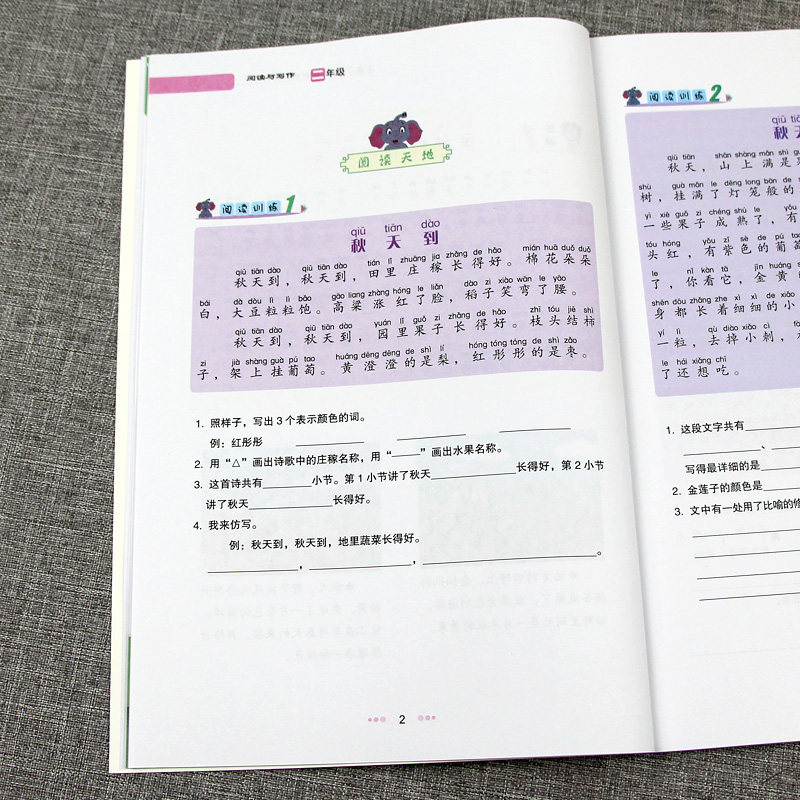 阅读与写作 二年级
阅读天地
阅读训练 1
qiū tiān dào
秋天到
qiū tiān dào qiū tiān dào tián lǐ zhuāng jia zhǎng de hǎo mián huā duǒ duǒ
秋天到，秋天到，田里庄稼长得好。棉花朵朵
bái dà dòu lì lì bǎo gāo liang zhàng hóng le liǎn dào zi xiào wān le yāo
白，大豆粒粒饱。高粱涨红了脸，稻子笑弯了腰。
qiū tiān dào qiū tiān dào yuán lǐ guǒ zi zhǎng de hǎo zhī tóu jiē shì
秋天到，秋天到，园里果子长得好。枝头结柿
zi jià shàng guà pú tao huáng dēng dēng de shì lí hóng tóng tóng de shì zǎo
子，架上挂葡萄。黄澄澄的是梨，红彤彤的是枣。
1. 照样子，写出3个表示颜色的词。
例：红彤彤
2. 用“△”画出诗歌中的庄稼名称，用“——”画出水果名称。
3. 这首诗共有________小节。第1小节讲了秋天________长得好，第2小节
讲了秋天________长得好。
4. 我来仿写。
例：秋天到，秋天到，地里蔬菜长得好。
________，________，________。
2
阅读训练 2
qiū
秋
qiū tiān shān shàng mǎn shì
秋天，山上满是
shù guà mǎn le dēng long bān de
树，挂满了灯笼般的
yì xiē guǒ zi chéng shú le yǒu
一些果子成熟了，有
tóu hóng yǒu zǐ sè de pú tao
头红，有紫色的葡萄
le nǐ kàn tā jīn huáng
了，你看它，金黄
shēn dōu zhǎng zhe xì xì de xiǎo
身都长着细细的小
yí lì qù diào xiǎo cì
一粒，去掉小刺，
le hái xiǎng chī
了还想吃。
1. 这段文字共有________
________、
写得最详细的是
2. 金莲子的颜色是
3. 文中有一处用了比喻的修